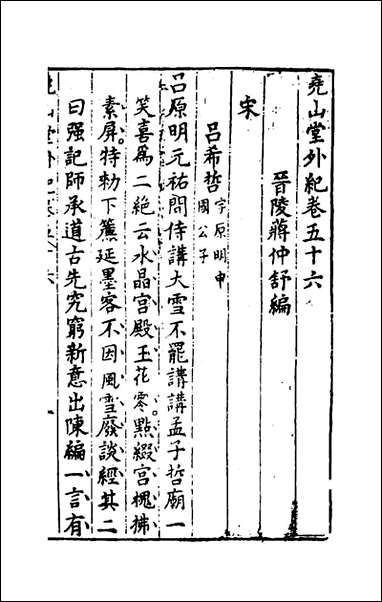 堯山堂外紀卷五十六
晉陵蔣仲舒編
宋
呂希哲字原明申
國公子
呂原明元祐間侍講大雪不罷講講孟子哲廟一
笑喜為二絕云水晶宮殿玉花零點綴宮槐拂
素屏特勑下簾延墨客不因風雪廢談經其二
曰強記師承道古先究窮新意出陳編一言有